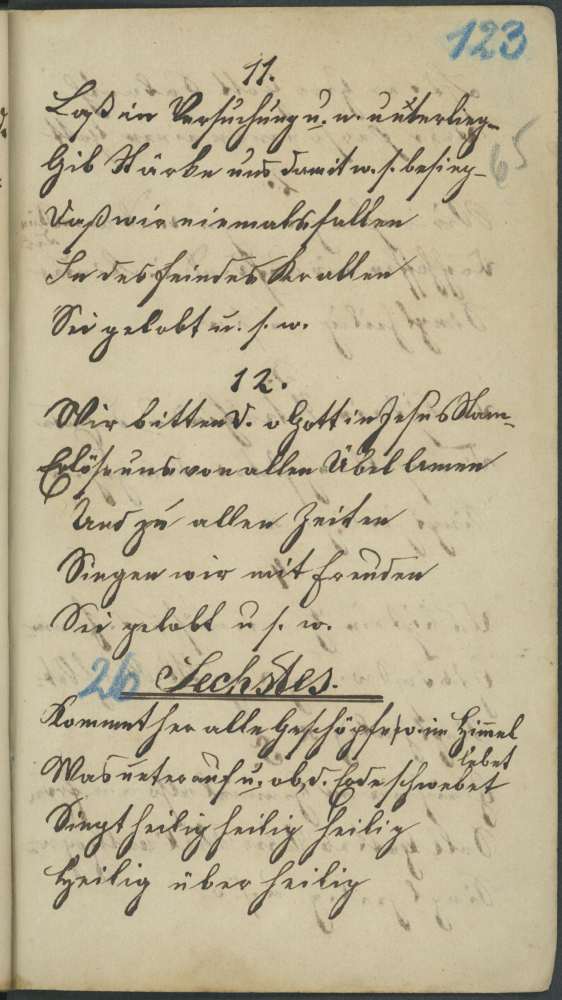 123
11.
Laß in Versuchung u. n. unterlieg-
65
Gib Stärke uns damit w. s. besieg-
Daß wir niemals fallen
In des Feindes Krallen
Sei gelobt u. s. w.
12.
Wir bitten d. o Gott in Jesus Nam-
Erlöse uns von allen Übel Amen
Und zu allen Zeiten
Singen wir mit Freuden
Sei gelobt u s. w.
26 Sechstes.
Kommet her alle Geschöpfe im Himmel
lebet
Was unter auf u. ob d. Erde schwebet
Singt heilig heilig heilig
Heilig über heilig